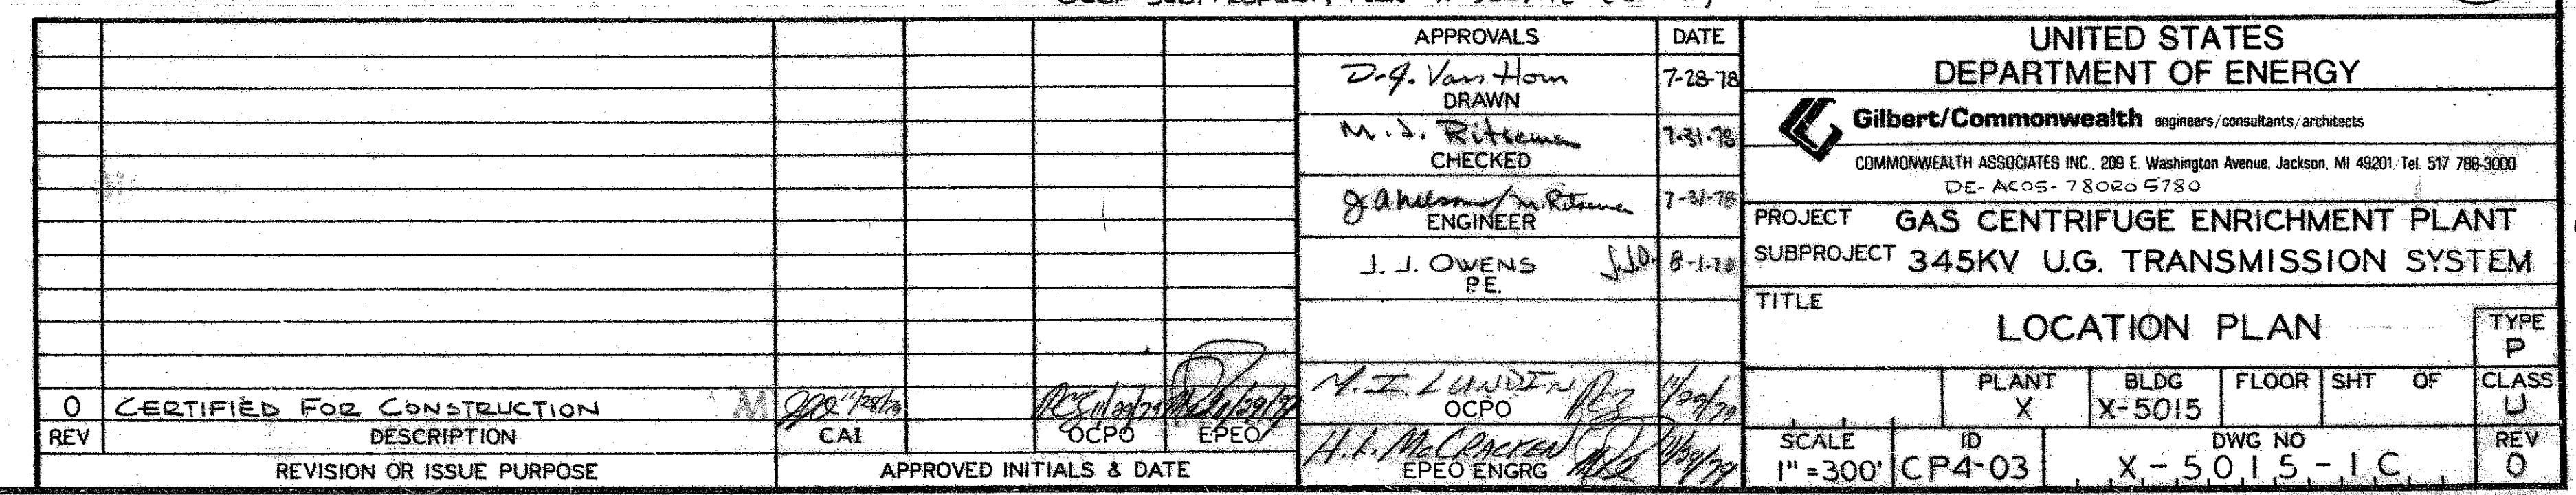 0 CERTIFIED FOR CONSTRUCTION M 11/28/79 11/29/79 11/29/79
REV DESCRIPTION CAI OCPO EPEO
REVISION OR ISSUE PURPOSE APPROVED INITIALS & DATE
APPROVALS DATE
D.J. Van Horn 7-28-78
DRAWN
M. J. Ritsema 7-31-78
CHECKED
M. Ritsema 7-31-78
ENGINEER
J. J. OWENS J.J.O. 8-1-78
P.E.
M. I. LUNDIN 11/29/79
OCPO
H. L. McCRACKEN 11/29/79
EPEO ENGRG
UNITED STATES
DEPARTMENT OF ENERGY
Gilbert/Commonwealth engineers/consultants/architects
COMMONWEALTH ASSOCIATES INC., 209 E. Washington Avenue, Jackson, MI 49201 Tel. 517 788-3000
DE-AC05-78OR05780
PROJECT GAS CENTRIFUGE ENRICHMENT PLANT
SUBPROJECT 345KV U.G. TRANSMISSION SYSTEM
TITLE
LOCATION PLAN
TYPE
P
PLANT BLDG FLOOR SHT OF CLASS
X X-5015 U
SCALE ID DWG NO REV
1"=300' CP4-03 X-5015-1C 0